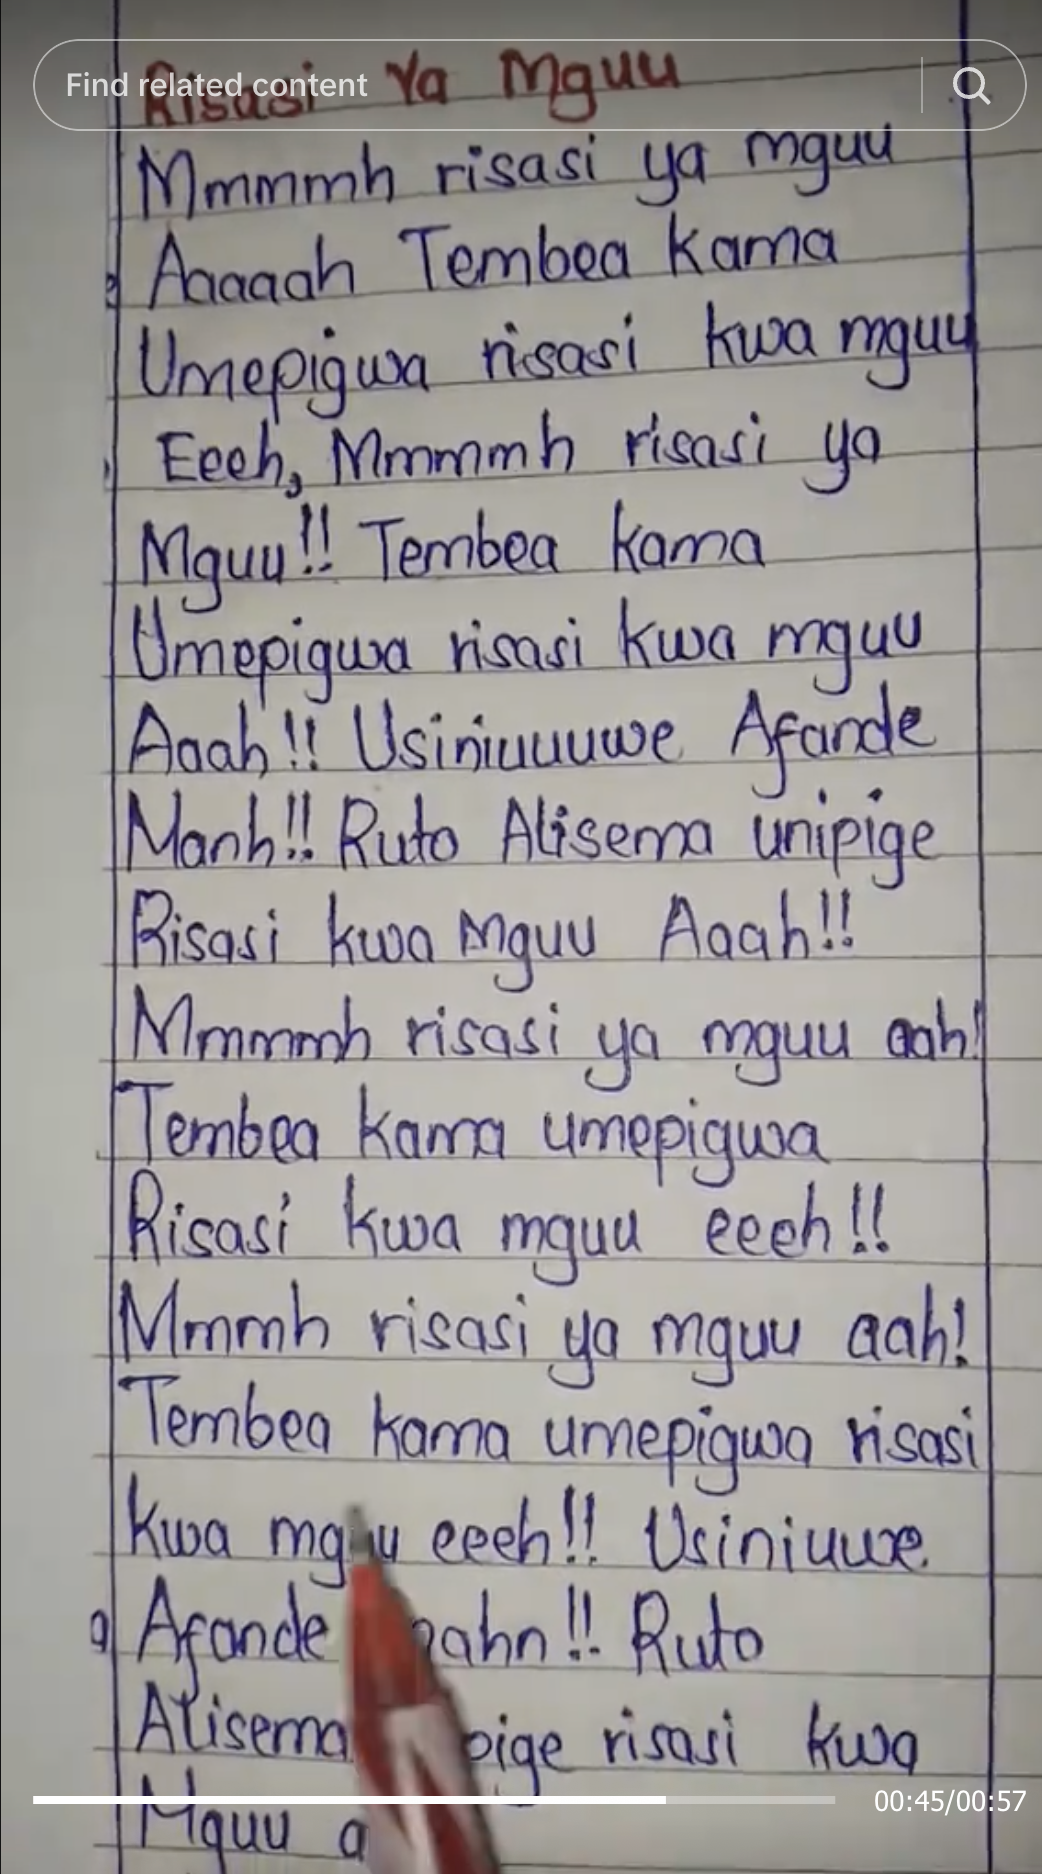 Find related content
Risasi Ya Mguu
Mmmmh risasi ya mguu
Aaaaah Tembea kama
Umepigwa risasi kwa mguu
Eeeh, Mmmmmh risasi ya
Mguu!! Tembea kama
Umepigwa risasi kwa mguu
Aaah!! Usiniuuuuwe Afande
Manh!! Ruto Alisema unipige
Risasi kwa Mguu Aaah!!
Mmmmmh risasi ya mguu aah!
Tembea kama umepigwa
Risasi kwa mguu eeeh!!
Mmmmh risasi ya mguu aah!
Tembea kama umepigwa risasi
kwa mguu eeeh!! Usiniuuwe
Afande !! Ruto
Alisema risasi kwa
Mguu
00:45/00:57